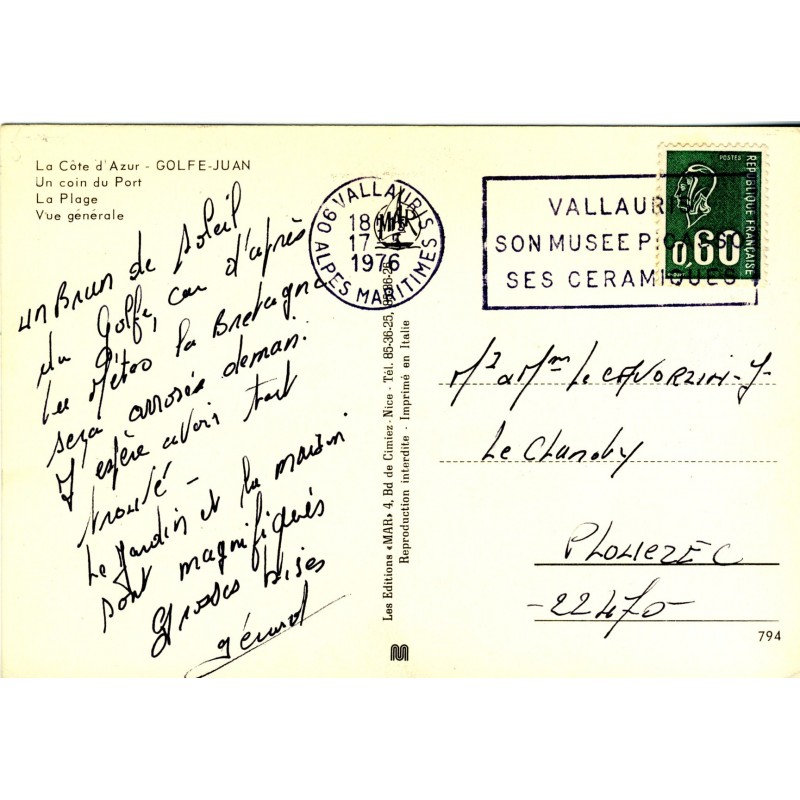 La Côte d'Azur - GOLFE-JUAN
Un coin du Port
La Plage
Vue générale
un Brun de Soleil
du Golfe, car d'après
la Bretagne
sera arrosée demain.
J'espère avoir tout
trouvé -
Le Jardin et la maison
sont magnifiques
Grosses bises
gérard
VALLAURIS
18H
17-5
1976
06 ALPES MARITIMES
Les Editions «MAR» 4, Bd de Cimiez - Nice - Tél. 85-36-25,
Reproduction interdite - Imprimé en Italie
M
VALLAURIS
SON MUSEE PICASSO
SES CERAMIQUES
POSTES
REPUBLIQUE FRANÇAISE
0,60
Mr a Mm Le CAVORZIN - Y-
Le
PLOUEZEC
-22470-
794